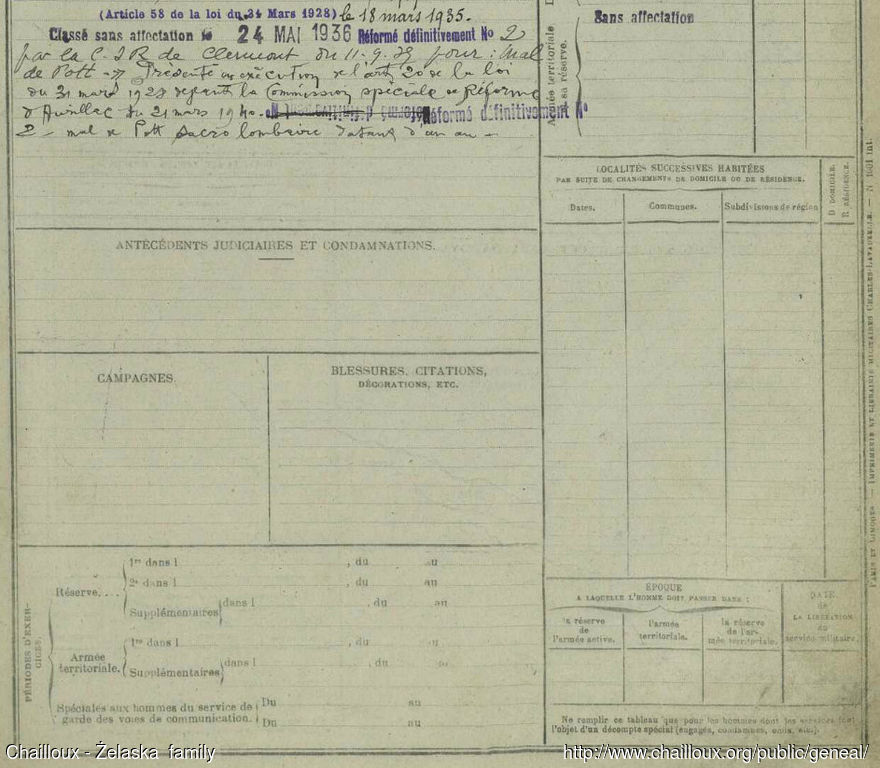 (Article 58 de la loi du 31 Mars 1928) le 18 mars 1935.
Classé sans affectation le 24 MAI 1936 Réformé définitivement No 2
par la C. de Clermont du 11-9-39 pour : Mal
de Pott - Présenté en exécution de l'art 20 de la loi
du 31 mars 1928 devant la Commission spéciale de Réforme
d'Aurillac du 21 mars 1940. Réformé définitivement No
2 - mal de Pott sacro lombaire datant d'un an -
ANTÉCÉDENTS JUDICIAIRES ET CONDAMNATIONS.
CAMPAGNES.
BLESSURES, CITATIONS,
DÉCORATIONS, ETC.
PÉRIODES D'EXER-
CICES.
Réserve....
1re dans l , du au
2e dans l , du au
Supplémentaires dans l , du au
Armée
territoriale.
1re dans l , du au
Supplémentaires dans l , du au
Spéciales aux hommes du service de
garde des voies de communication.
Du au
Du au
Armée territoriale
et sa réserve.
Sans affectation
LOCALITÉS SUCCESSIVES HABITÉES
PAR SUITE DE CHANGEMENTS DE DOMICILE OU DE RÉSIDENCE.
Dates.
Communes.
Subdivisions de région
D DOMICILE.
R RÉSIDENCE.
ÉPOQUE
A LAQUELLE L'HOMME DOIT PASSER DANS :
la réserve
de
l'armée active.
l'armée
territoriale.
la réserve
de l'ar-
mée territoriale.
DATE
de
LA LIBÉRATION
du
service militaire.
Ne remplir ce tableau que pour les hommes dont les services font
l'objet d'un décompte spécial (engagés, condamnés, omis, etc.).
PARIS ET LIMOGES. — IMPRIMERIE ET LIBRAIRIE MILITAIRES CHARLES-LAVAUZELLE. — N 1601 int.
Chailloux - Želaska family
http://www.chailloux.org/public/geneal/